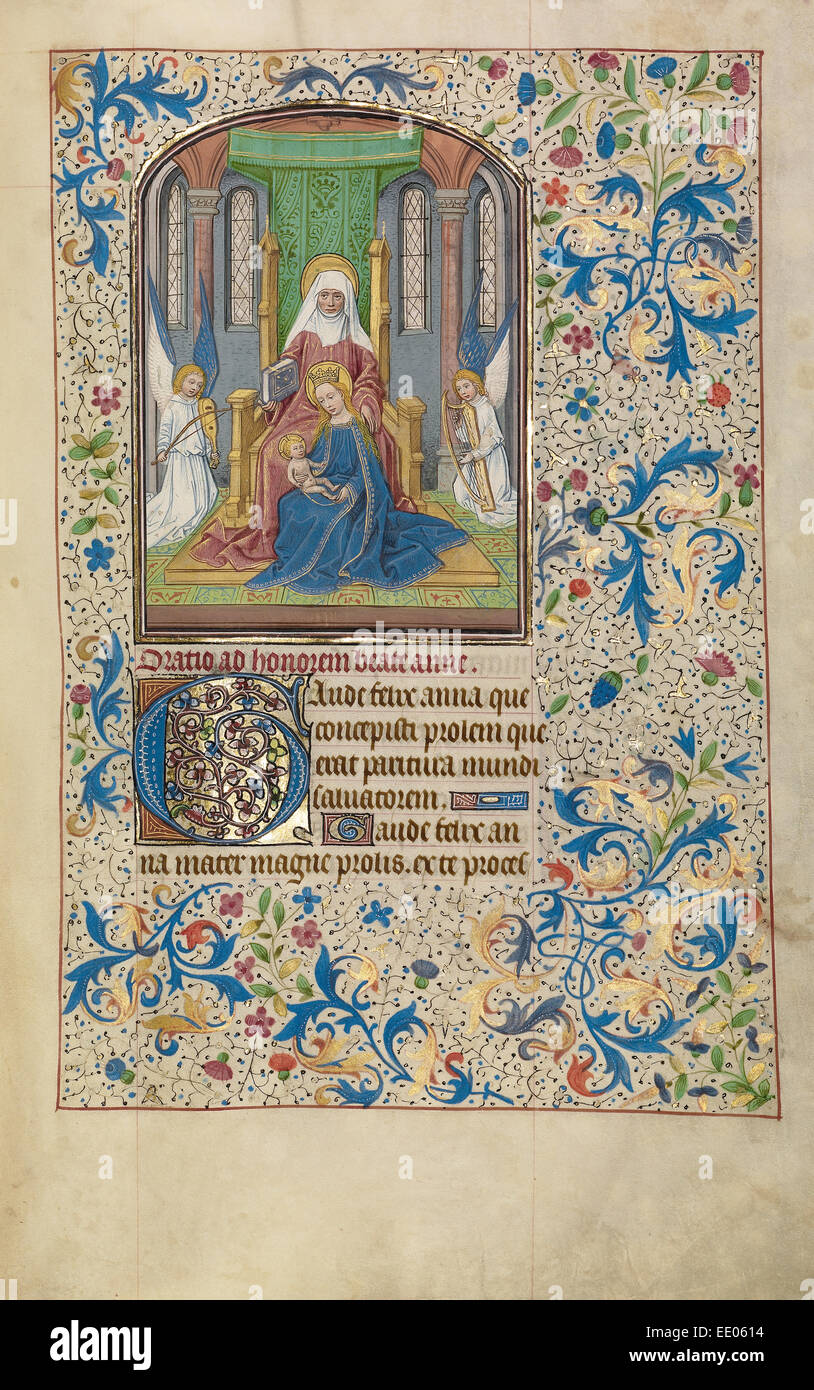 Oratio ad honorem beate anne.
Gaude felix anna que
concepisti prolem que
erat paritura mundi
saluatorem.
Gaude felix an
na mater magne prolis. ex te proces
alamy
Image ID: EE0614
www.alamy.com